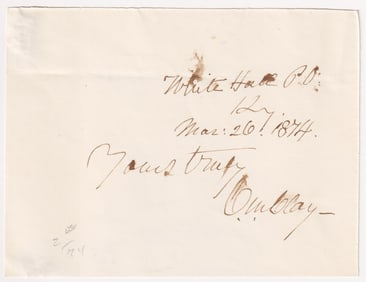 White Hall P.O:
Ky.
Mar: 26. 1874.
Yours truly
C. M. Clay—